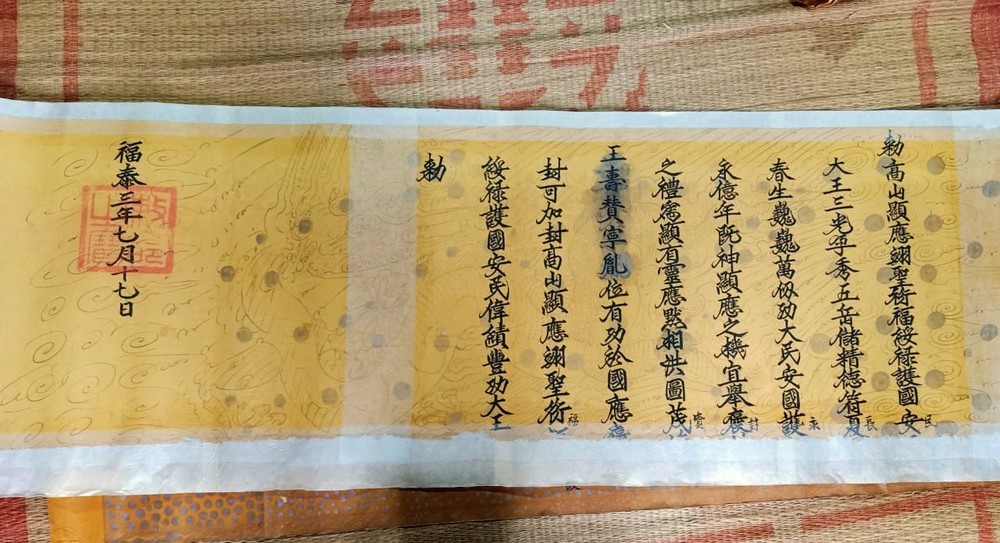 勅高山顯應翊聖衍福綏禄護國安民
大王三光孕秀五岳儲精德符夏長
春生巍巍萬仭功大民安國護永
永億年既神顯應之機宜舉褒封
之禮爲顯有靈應默相洪圖茂
王壽賛寧胤位有功於國應
封可加封高山顯應翊聖衍福
綏禄護國安民偉績豐功大王
勅
福泰三年七月十七日
敕命之寶